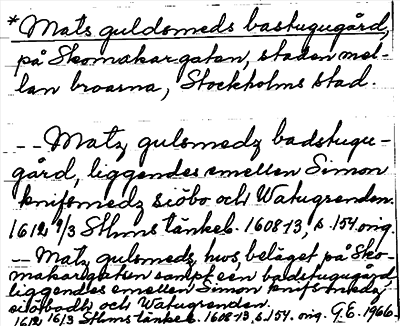 *Mats guldsmeds bastugugård,
på Skomakargatan, staden mel-
lan broarna, Stockholms stad.
-- Matz gulsmedz badstugu-
gård, liggendes emellen Simon
knifsmedz siöbo och Watugrenden.
1612 9/3 Sthms tänkeb. 1608-13, s. 154 orig.
-- Matz gulsmedz hws beläget på Sko-
makargaten sampt een badstugugård
liggendes emellen Simon knifsmedz
siöbodh och Watugrenden.
1612 16/3 Sthms tänkeb. 1608-13, s. 154. orig. G.E. 1966.